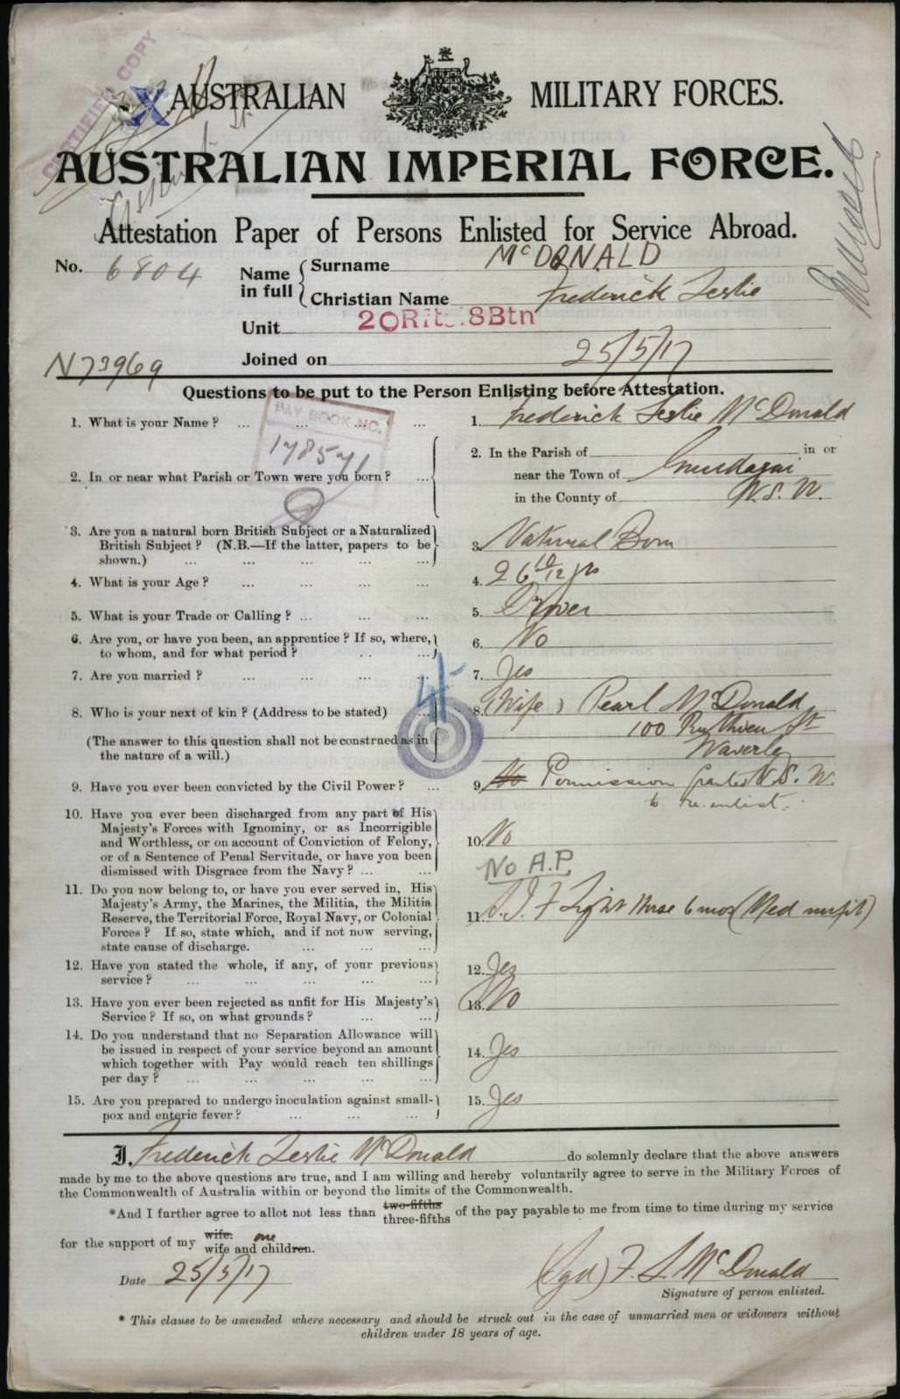 CERTIFIED COPY
AUSTRALIAN MILITARY FORCES.
AUSTRALIAN IMPERIAL FORCE.
Attestation Paper of Persons Enlisted for Service Abroad.
No. 6804
Name in full { Surname McDONALD
Christian Name Frederick Leslie
Unit 20Rfts. 18Btn
Joined on 25/5/17
N73969
Questions to be put to the Person Enlisting before Attestation.
PAY BOOK NO.
178571
1. What is your Name ? ... ... ... 1. Frederick Leslie McDonald
2. In or near what Parish or Town were you born ? ... 2. In the Parish of in or
near the Town of Gundagai
in the County of N.S.W.
3. Are you a natural born British Subject or a Naturalized
British Subject ? (N.B.—If the latter, papers to be
shown.) ... ... ... ... 3. Natural Born
4. What is your Age ? ... ... ... 4. 26 10/12 yrs
5. What is your Trade or Calling ? ... ... ... 5. Driver
6. Are you, or have you been, an apprentice ? If so, where,
to whom, and for what period ? 6. No
7. Are you married ? ... ... ... 7. Yes
8. Who is your next of kin ? (Address to be stated) ... 8. (Wife) Pearl McDonald
100 Ruthven St
(The answer to this question shall not be construed as in
the nature of a will.) Waverley
N.S.W.
9. Have you ever been convicted by the Civil Power ? ... 9. No Permission granted
to re-enlist.
10. Have you ever been discharged from any part of His
Majesty's Forces with Ignominy, or as Incorrigible
and Worthless, or on account of Conviction of Felony,
or of a Sentence of Penal Servitude, or have you been
dismissed with Disgrace from the Navy ? ... ... 10. No
No A.P.
11. Do you now belong to, or have you ever served in, His
Majesty's Army, the Marines, the Militia, the Militia
Reserve, the Territorial Force, Royal Navy, or Colonial
Forces ? If so, state which, and if not now serving,
state cause of discharge. ... ... ... 11. A.I.F Light Horse 6 mos (Med unfit)
12. Have you stated the whole, if any, of your previous
service ? ... ... ... ... 12. Yes
13. Have you ever been rejected as unfit for His Majesty's
Service ? If so, on what grounds ? ... ... 13. No
14. Do you understand that no Separation Allowance will
be issued in respect of your service beyond an amount
which together with Pay would reach ten shillings
per day ? ... ... ... ... 14. Yes
15. Are you prepared to undergo inoculation against small-
pox and enteric fever ? ... ... ... 15. Yes
I, Frederick Leslie McDonald do solemnly declare that the above answers
made by me to the above questions are true, and I am willing and hereby voluntarily agree to serve in the Military Forces of
the Commonwealth of Australia within or beyond the limits of the Commonwealth.
*And I further agree to allot not less than two-fifths three-fifths of the pay payable to me from time to time during my service
for the support of my wife. wife and one children.
Date 25/5/17 (Sgd) F. L. McDonald
Signature of person enlisted.
* This clause to be amended where necessary and should be struck out in the case of unmarried men or widowers without
children under 18 years of age.